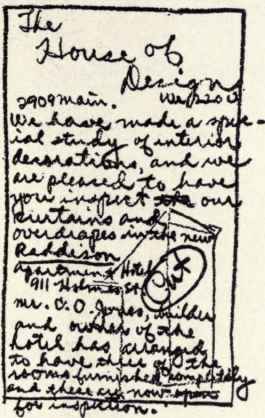 The
House of
Design
2909 main. We 5200
We have made a spec-
ial study of interior
decorations, and we
are pleased to have
you inspect our
curtains and
overdrapes in the new
Raddison
apartment Hotel
911 Holmes St.
mr. O. O. Jones, builder
and owner of the
hotel has arranged
to have three of the
rooms furnished completely
and these are now open
for inspection.
Cut